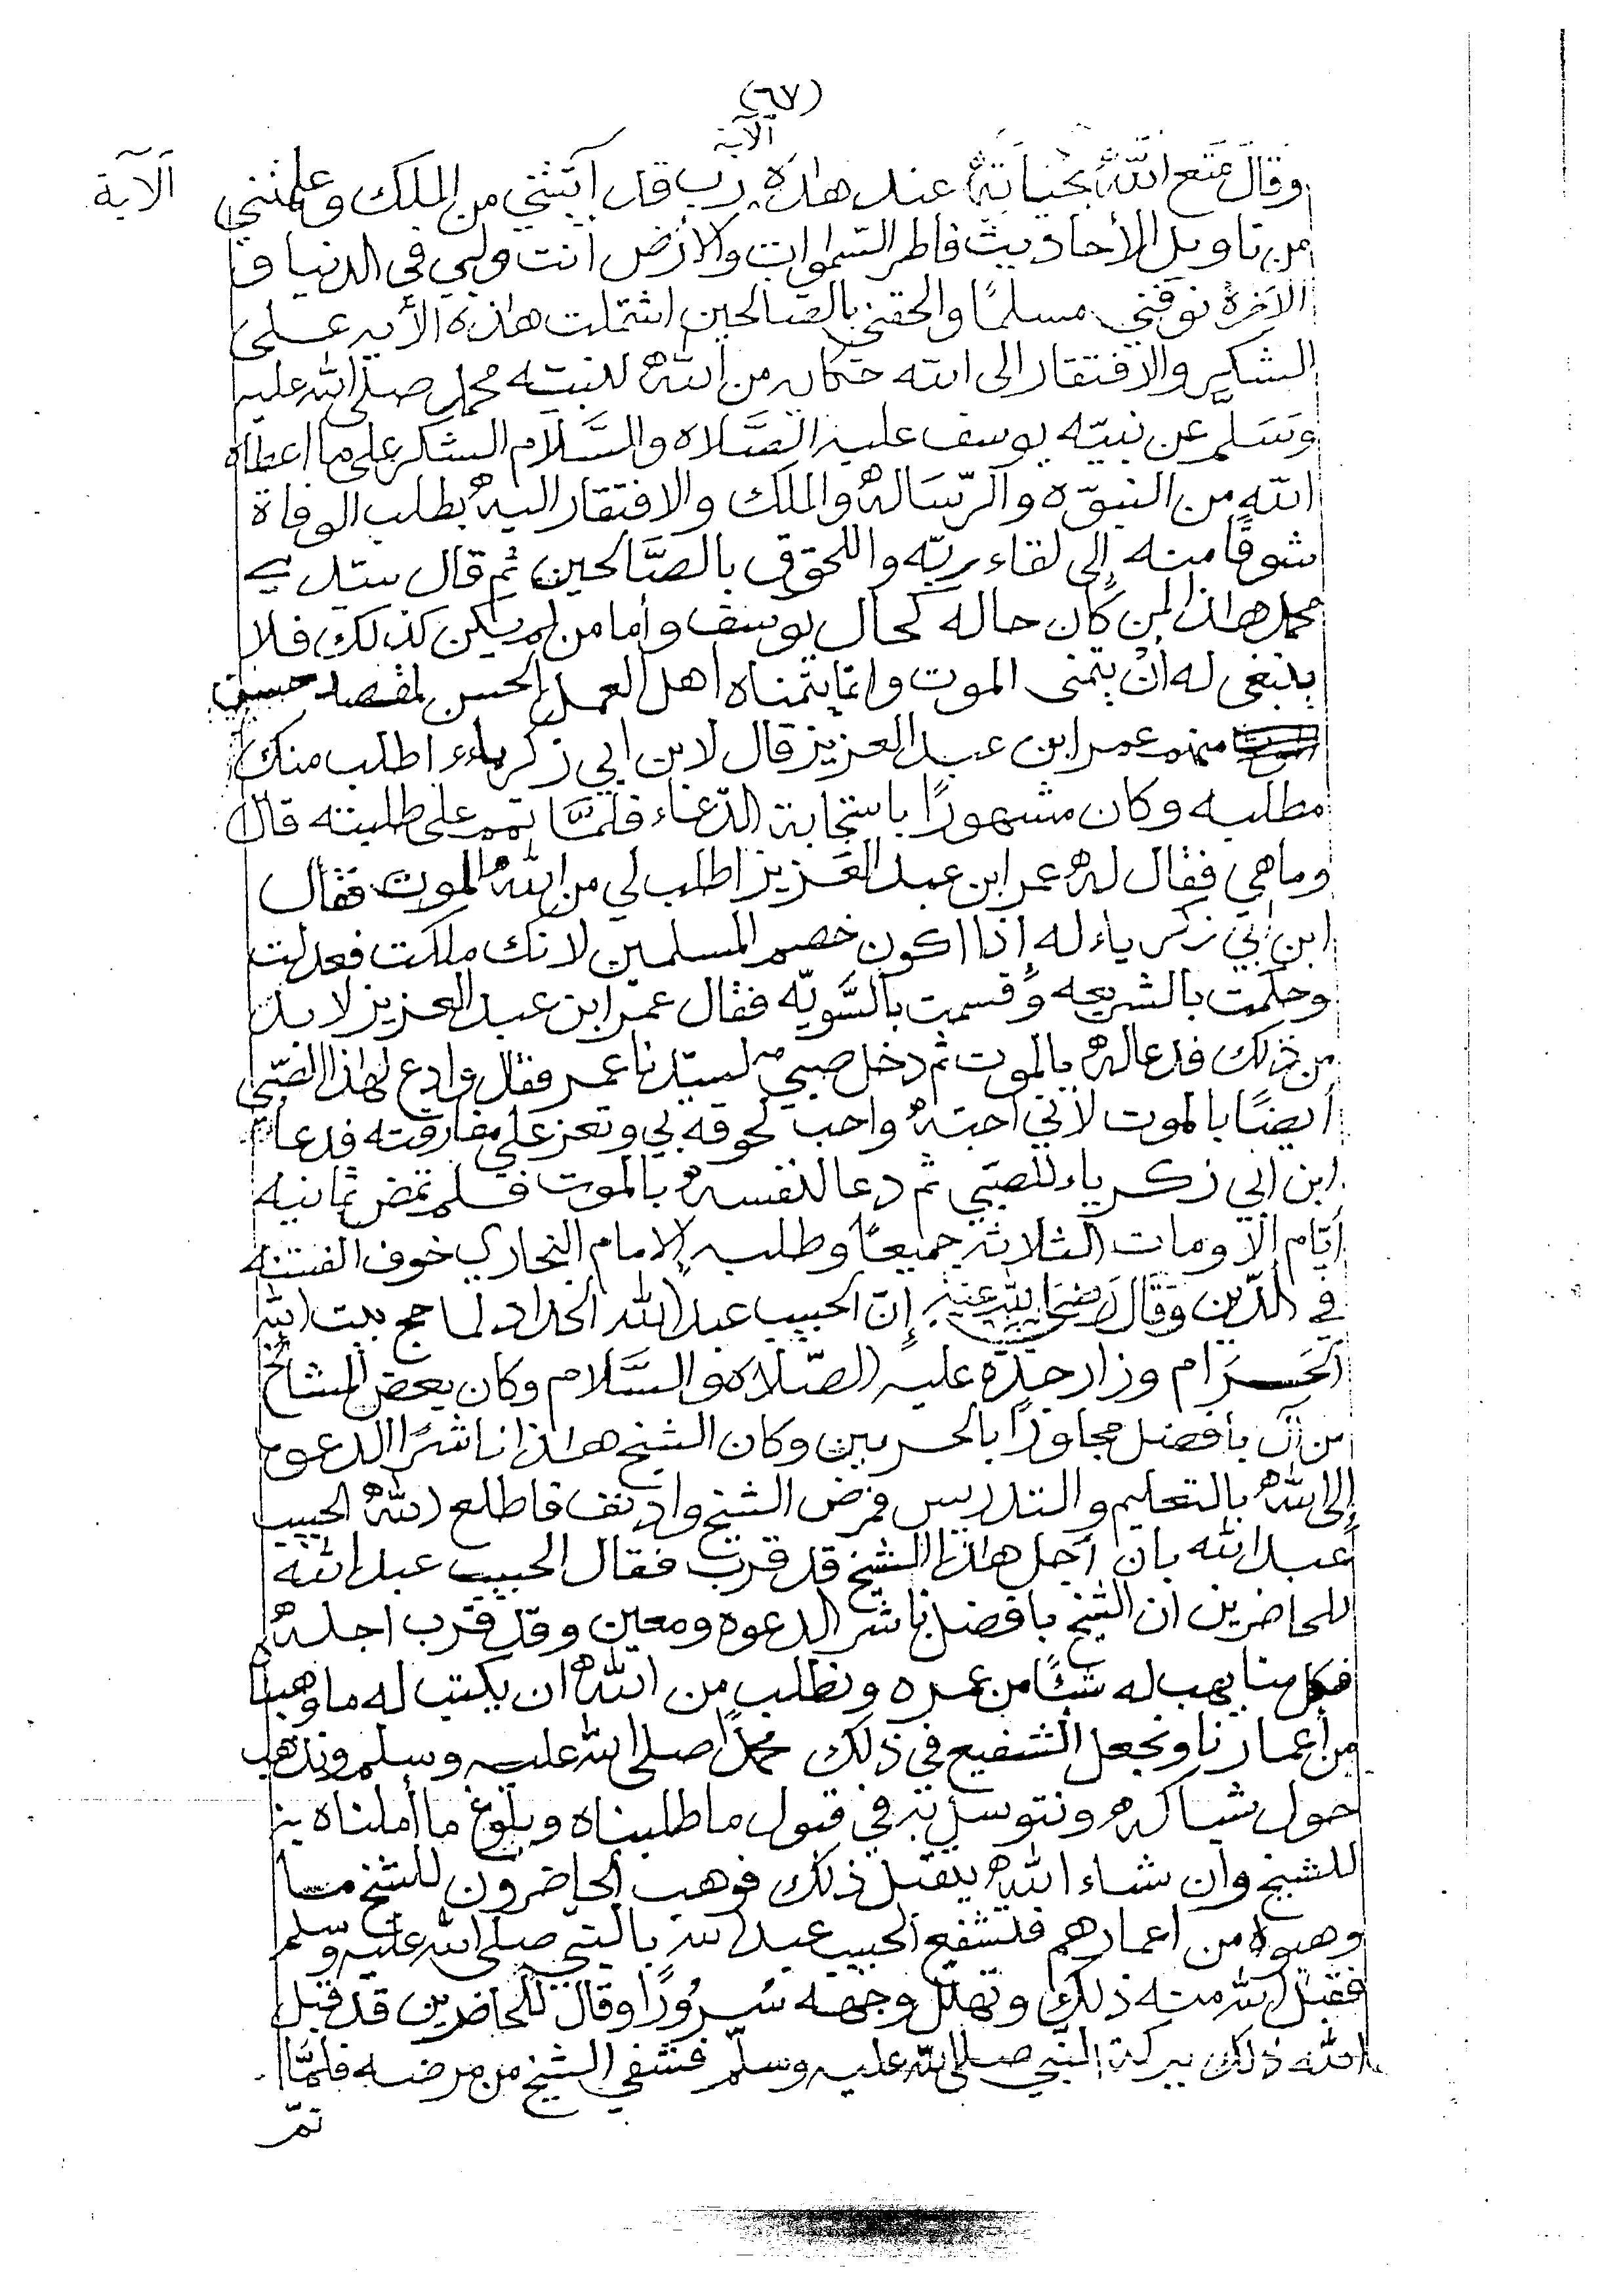 (٦٧)
الآية
وقال متع الله بحياته عند هاذه رب قد آتيتني من الملك وعلمتني
الآية
من تاويل الأحاديث فاطر السموات والأرض أنت وليي في الدنيا و
الآخرة توفني مسلمًا والحقني بالصالحين اشتملت هاذه الأية على
الشكر والافتقار الى الله حكاية من الله لنبيّه محمد صلى الله عليه
وَسَلّم عن نبيّه يوسف عليه الصَّلاه والسَّلام الشكر على ما اعطاه
الله من النبوّه والرّسَاله والملك والافتقار اليه بطلب الوفاة
شوقًا منه إلى لقاء ربّه واللحوق بالصَّالحين ثم قال سيّدي
محمد هاذا لمن كان حاله كحال يوسف وأما من لم يكن كذلك فلا
ينبغي له ان يتمنى الموت وانما يتمناه اهل العمل الحسن لمقصد حسن
منهم عمر ابن عبد العزيز قال لابن ابي زكرياء اطلب منك
مطلبه وكان مشهورًا باستجابة الدّعاء فلمَّا تمم على طلبته قال
وماهي فقال له عمر ابن عبد العَزيز اطلب لي من الله الموت فقال
ابن ابي زكرياء له إذا اكون خصم المسلمين لانك ملكت فعدلت
وحكمت بالشريعه وقسمت بالسَّويّه فقال عمر ابن عبد العزيز لا بد
من ذلك فدعا له بالموت ثم دخل صبي لسيّدنا عمر فقال وادع لهذا الصّبي
أيضًا بالموت لأني احبّه واحب لحوقه بي وتعز علي مفارقته فدعا
ابن ابي زكرياء للصبّي ثم دعا لنفسه بالموت فلم تمض ثمانيه
أيّام الا ومات الثلاثه جميعًا وطلبه الإمام البخاري خوف الفتنه
في الدّين وَقَالَ رَضيَ الله عنه إنّ الحبيب عبد الله الحداد لما حج بيت الله
الحَرَام وزار جدّه عليه الصّلاه والسَّلام وكان بعض المشائخ
من آل بأفضل مجاورًا بالحرمين وكان الشيخ هاذا ناشرًا الدعوه
إلى الله بالتعليم والتدريس فمرض الشيخ وادنف فاطلع الله الحبيب
عبد الله بان أجل هاذا الشيخ قد قرب فقال الحبيب عبد الله
للحاضرين ان الشيخ بافضل ناشر الدعوه ومعين وقد قرب اجله
فكل منا يهب له شيئًا من عمره ونطلب من الله ان يكتب له ما وهبنا
من أعمارنا ونجعل الشفيع في ذلك محمدًا صلى الله عليه وسلم ونذهب
حول شباكه ونتوسل به في قبول ما طلبناه وبلوغ ما أملناه به
للشيخ وان شاء الله يقبل ذلك فوهب الحاضرون للشيخ ما
وهبوه من اعمارهم فتشفع الحبيب عبد الله بالنبي صلى الله عليه وسلم
فقبل الله منه ذلك وتهلل وجهه سُرورًا وقال للحاضرين قد قبل
الله ذلك ببركة النبي صلى الله عليه وسلّم فشفي الشيخ من مرضه فلمَّا
تمّ